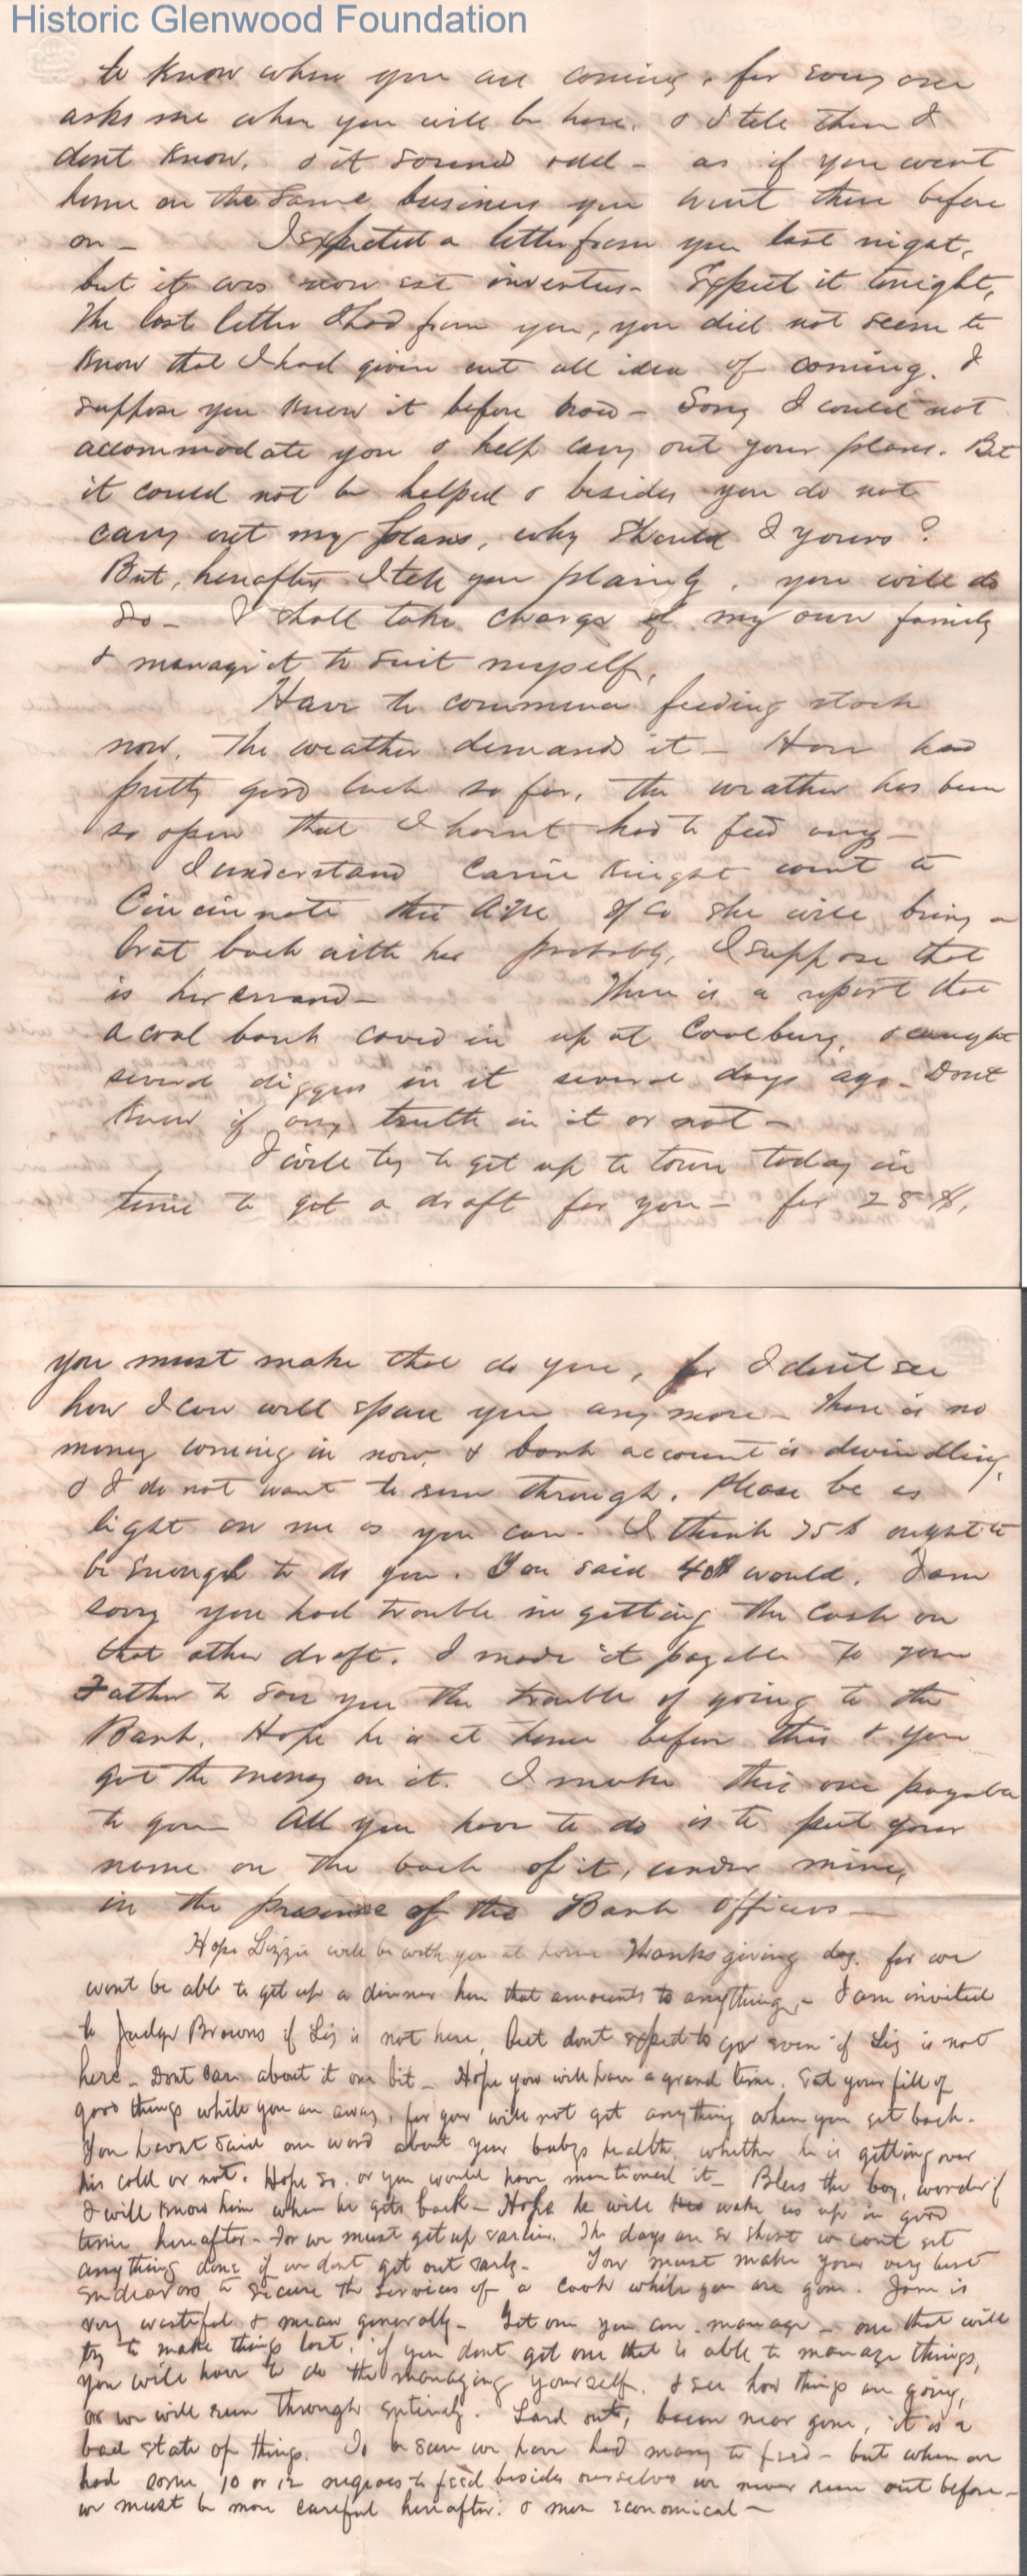 Historic Glenwood Foundation
to know when you are coming, for every one
asks me when you will be here. & I tell them I
dont know. & it sounds odd - as if you went
home on the same business you went there before
on - I expected a letter from you last night,
but it was non est inventus - Expect it tonight,
The last letter I had from you, you did not seem to
know that I had given out all idea of coming. I
suppose you knew it before now - Sorry I could not
accommodate you & help carry out your plans. But
it could not be helped & besides you do not
carry out my plans, why should I yours?
But, hereafter I tell you plainly, you will do
so - I shall take charge of my own family
& manage it to suit myself,
Have to commence feeding stock
now. The weather demands it - Have had
pretty good luck so far, the weather has been
so open that I havnt had to feed any -
I understand Carrie Knight went to
Cincinnati this If so she will bring a
brat back with her probably, I suppose that
is her errand - There is a report that
a coal bank caved in up at Coalburg, & caught
several diggers in it several days ago - Dont
know if any truth in it or not -
I will try to get up to town today in
time to get a draft for you - for 25 $,
you must make that do you, for I dont see
how I can well spare you any more - There is no
money coming in now, & bank account is dwindling,
& I do not want to run through. Please be as
light on me as you can - I think 75 $ ought to
be enough to do you. You said 40$ would. I am
sorry you had trouble in getting the cash on
that other draft. I made it payable to your
Father to save you the trouble of going to the
Bank. Hope he is at home before this & you
got the money on it. I make this one payable
to you - All you have to do is to put your
name on the back of it, under mine,
in the presence of the Bank officers -
Hope Lizzie will be with you at home Thanksgiving day. for we
wont be able to get up a dinner here that amounts to anything - I am invited
to Judge Browns if Liz is not here, but dont expect to go even if Liz is not
here - Dont care about it one bit - Hope you will have a grand time. Eat your fill of
good things while you are away, for you will not get anything when you get back -
You havnt said one word about your babys health, whether he is getting over
his cold or not. Hope so, or you would have mentioned it - Bless the boy, wonder if
I will know him when he gets back - Hope he will wake us up in good
time hereafter - For we must get up earlier. The days are so short we cant get
anything done if we dont get out early - You must make your very best
endeavors to secure the services of a cook while you are gone. Jane is
very wasteful & mean generally - Get one you can manage - one that will
try to make things last. if you dont get one that is able to manage things,
you will have to do the managing yourself. & see how things are going,
or we will run through entirely. Lard out, bacon near gone, it is a
bad state of things. To be sure we have had many to feed - but when we
had some 10 or 12 negroes to feed besides ourselves we never run out before -
we must be more careful hereafter. & more economical -